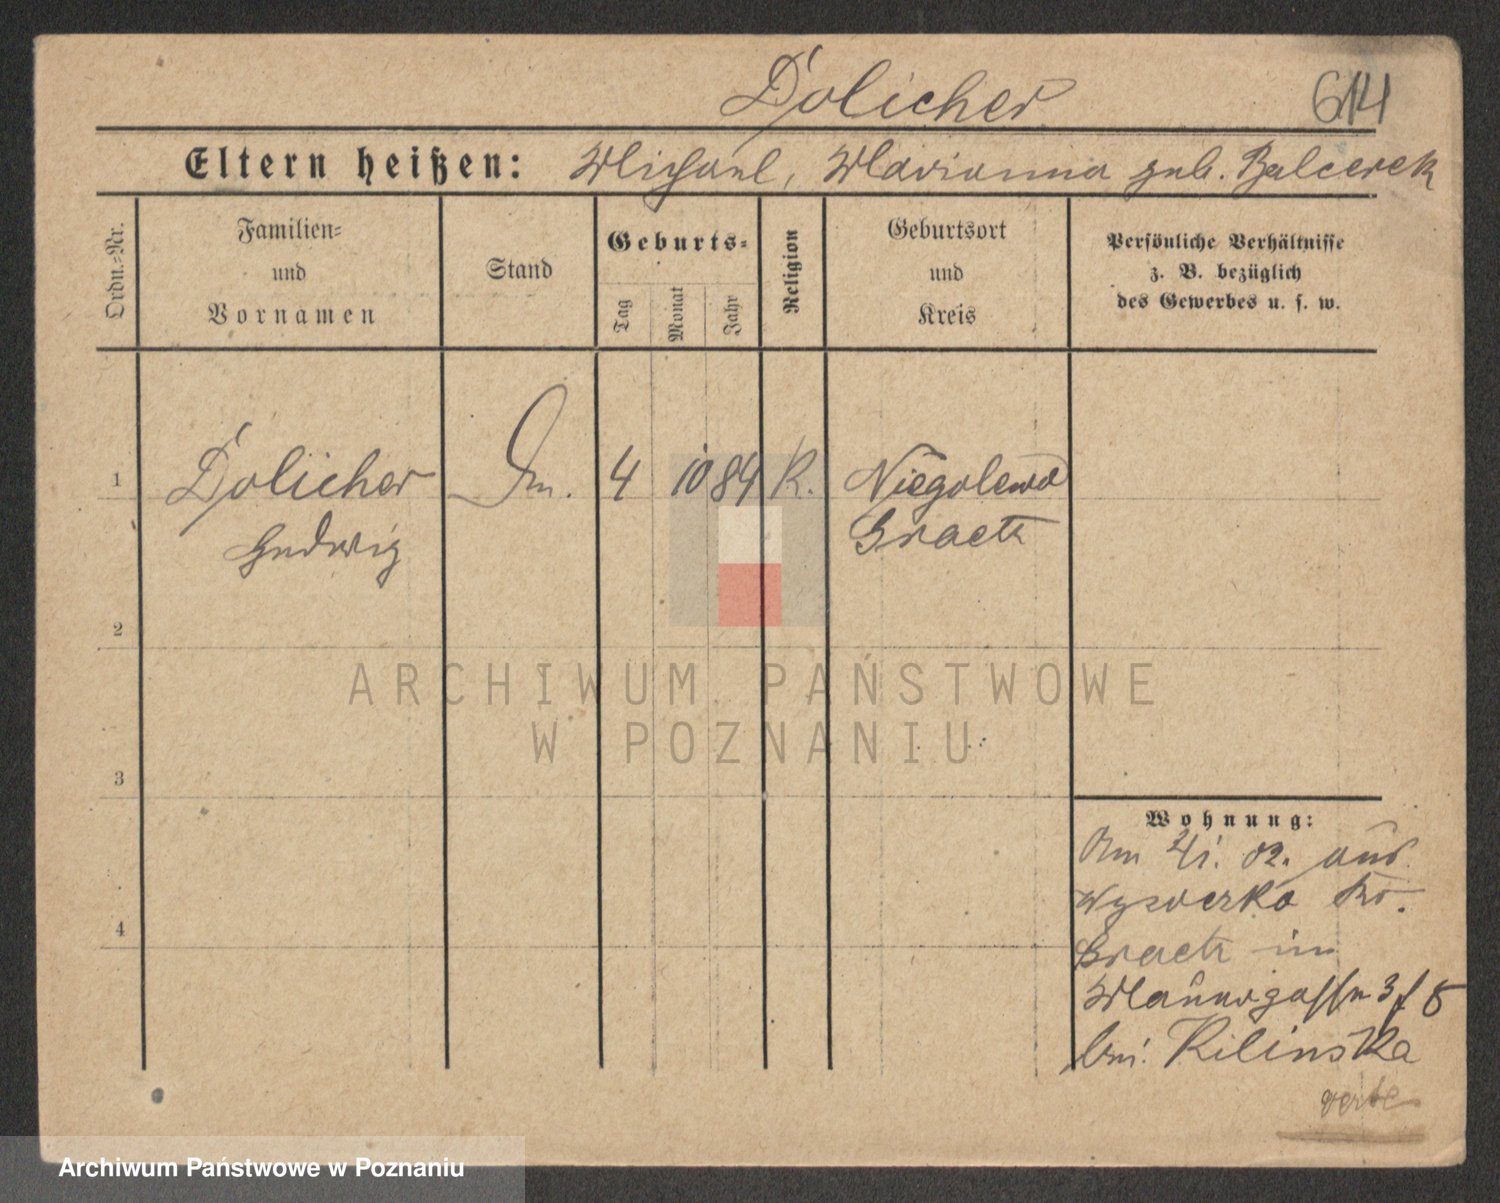 Dolicher
614
Eltern heißen: Michael, Marianna geb. Balcerek
Ordn.-Nr.
Familien-
und
Vornamen
Stand
Geburts-
Tag
Monat
Jahr
Religion
Geburtsort
und
Kreis
Persönliche Verhältnisse
z. B. bezüglich
des Gewerbes u. s. w.
1 Dolicher 4 10 84 K. Niegolewo
Hedwig
Graetz
2
3
4
Wohnung:
Am 2/1. 02. aus
Kr.
Graetz in
Mauergasse 3
bei Kilinska
ARCHIWUM PAŃSTWOWE
W POZNANIU
Archiwum Państwowe w Poznaniu